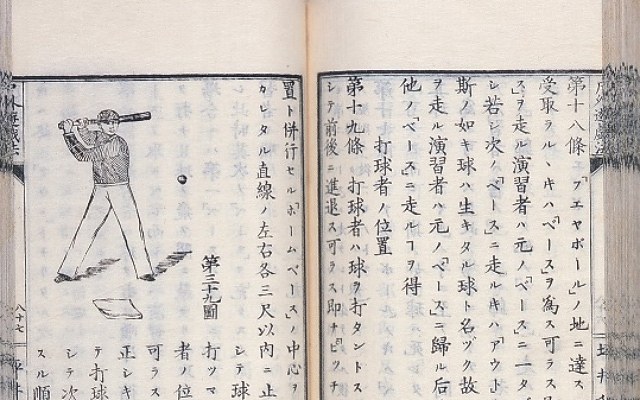 第十八條 「フエヤボール」ノ地ニ達ス
受取ラル丶キハ「ベース」ヲ為ス可ラス
ス」ヲ走ル演習者ハ元ノ「ベース」ニ一タ
シ若シ次ノ「ベース」ニ走ルキハ「アウト
斯ノ如キ球ハ生キタル球ト名ヅク故
ヲ走ル演習者ハ元ノ「ベース」ニ歸ル后
他ノ「ベース」ニ走ルヿヲ得
打球者ノ位置
第十九條 打球者ハ球ヲ打タントス
シテ前後ニ進退ス可ラス即チ「ピッチ
置ト併行セル「ホームベース」ノ中心ヲ
カレタル直線ノ左右各三尺以内ニ止
第三十九圖
シテ球
打ツマ
者ノ位
可ラス
正シキ
テ打球
シテ次
スル順
八十七